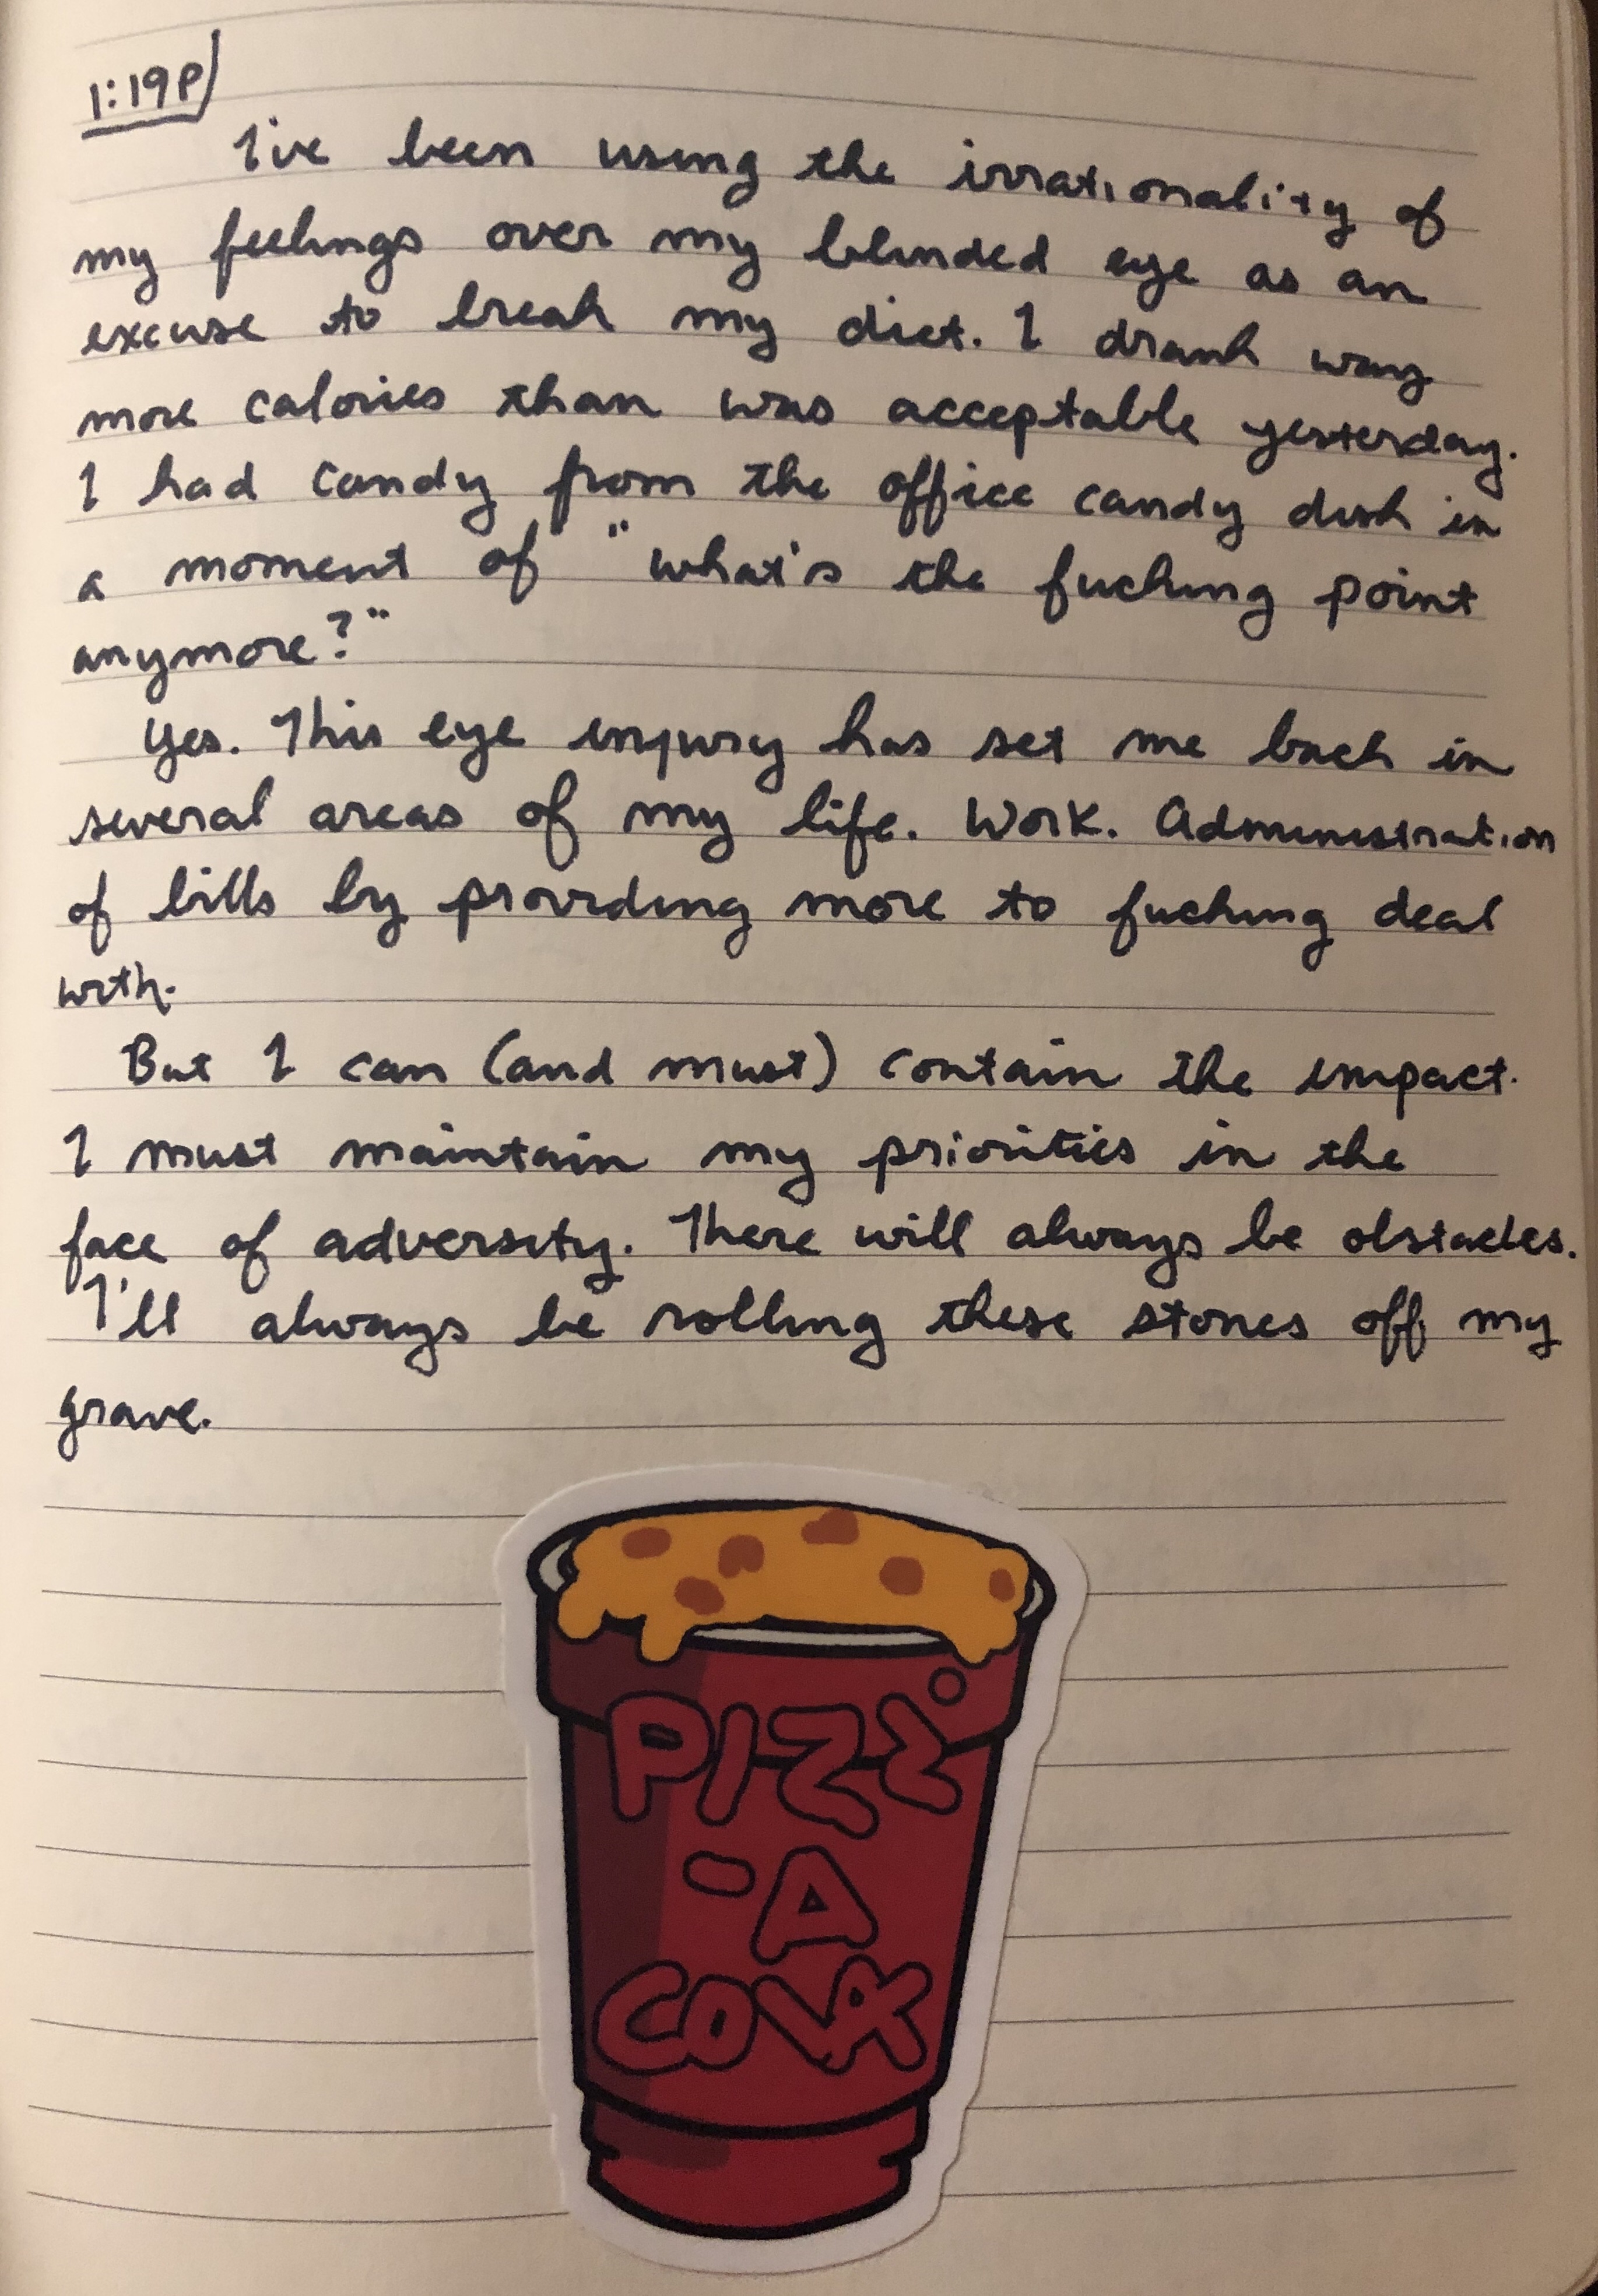 1:19P
I've been using the irrationality of
my feelings over my blinded eye as an
excuse to break my diet. I drank way
more calories than was acceptable yesterday.
I had candy from the office candy dish in
a moment of "what's the fucking point
anymore?"
Yes. This eye injury has set me back in
several areas of my life. Work. Administration
of bills by providing more to fucking deal
with.
But I can (and must) contain the impact.
I must maintain my priorities in the
face of adversity. There will always be obstacles.
I'll always be rolling these stones off my
grave.
PIZZ
-A
COLA